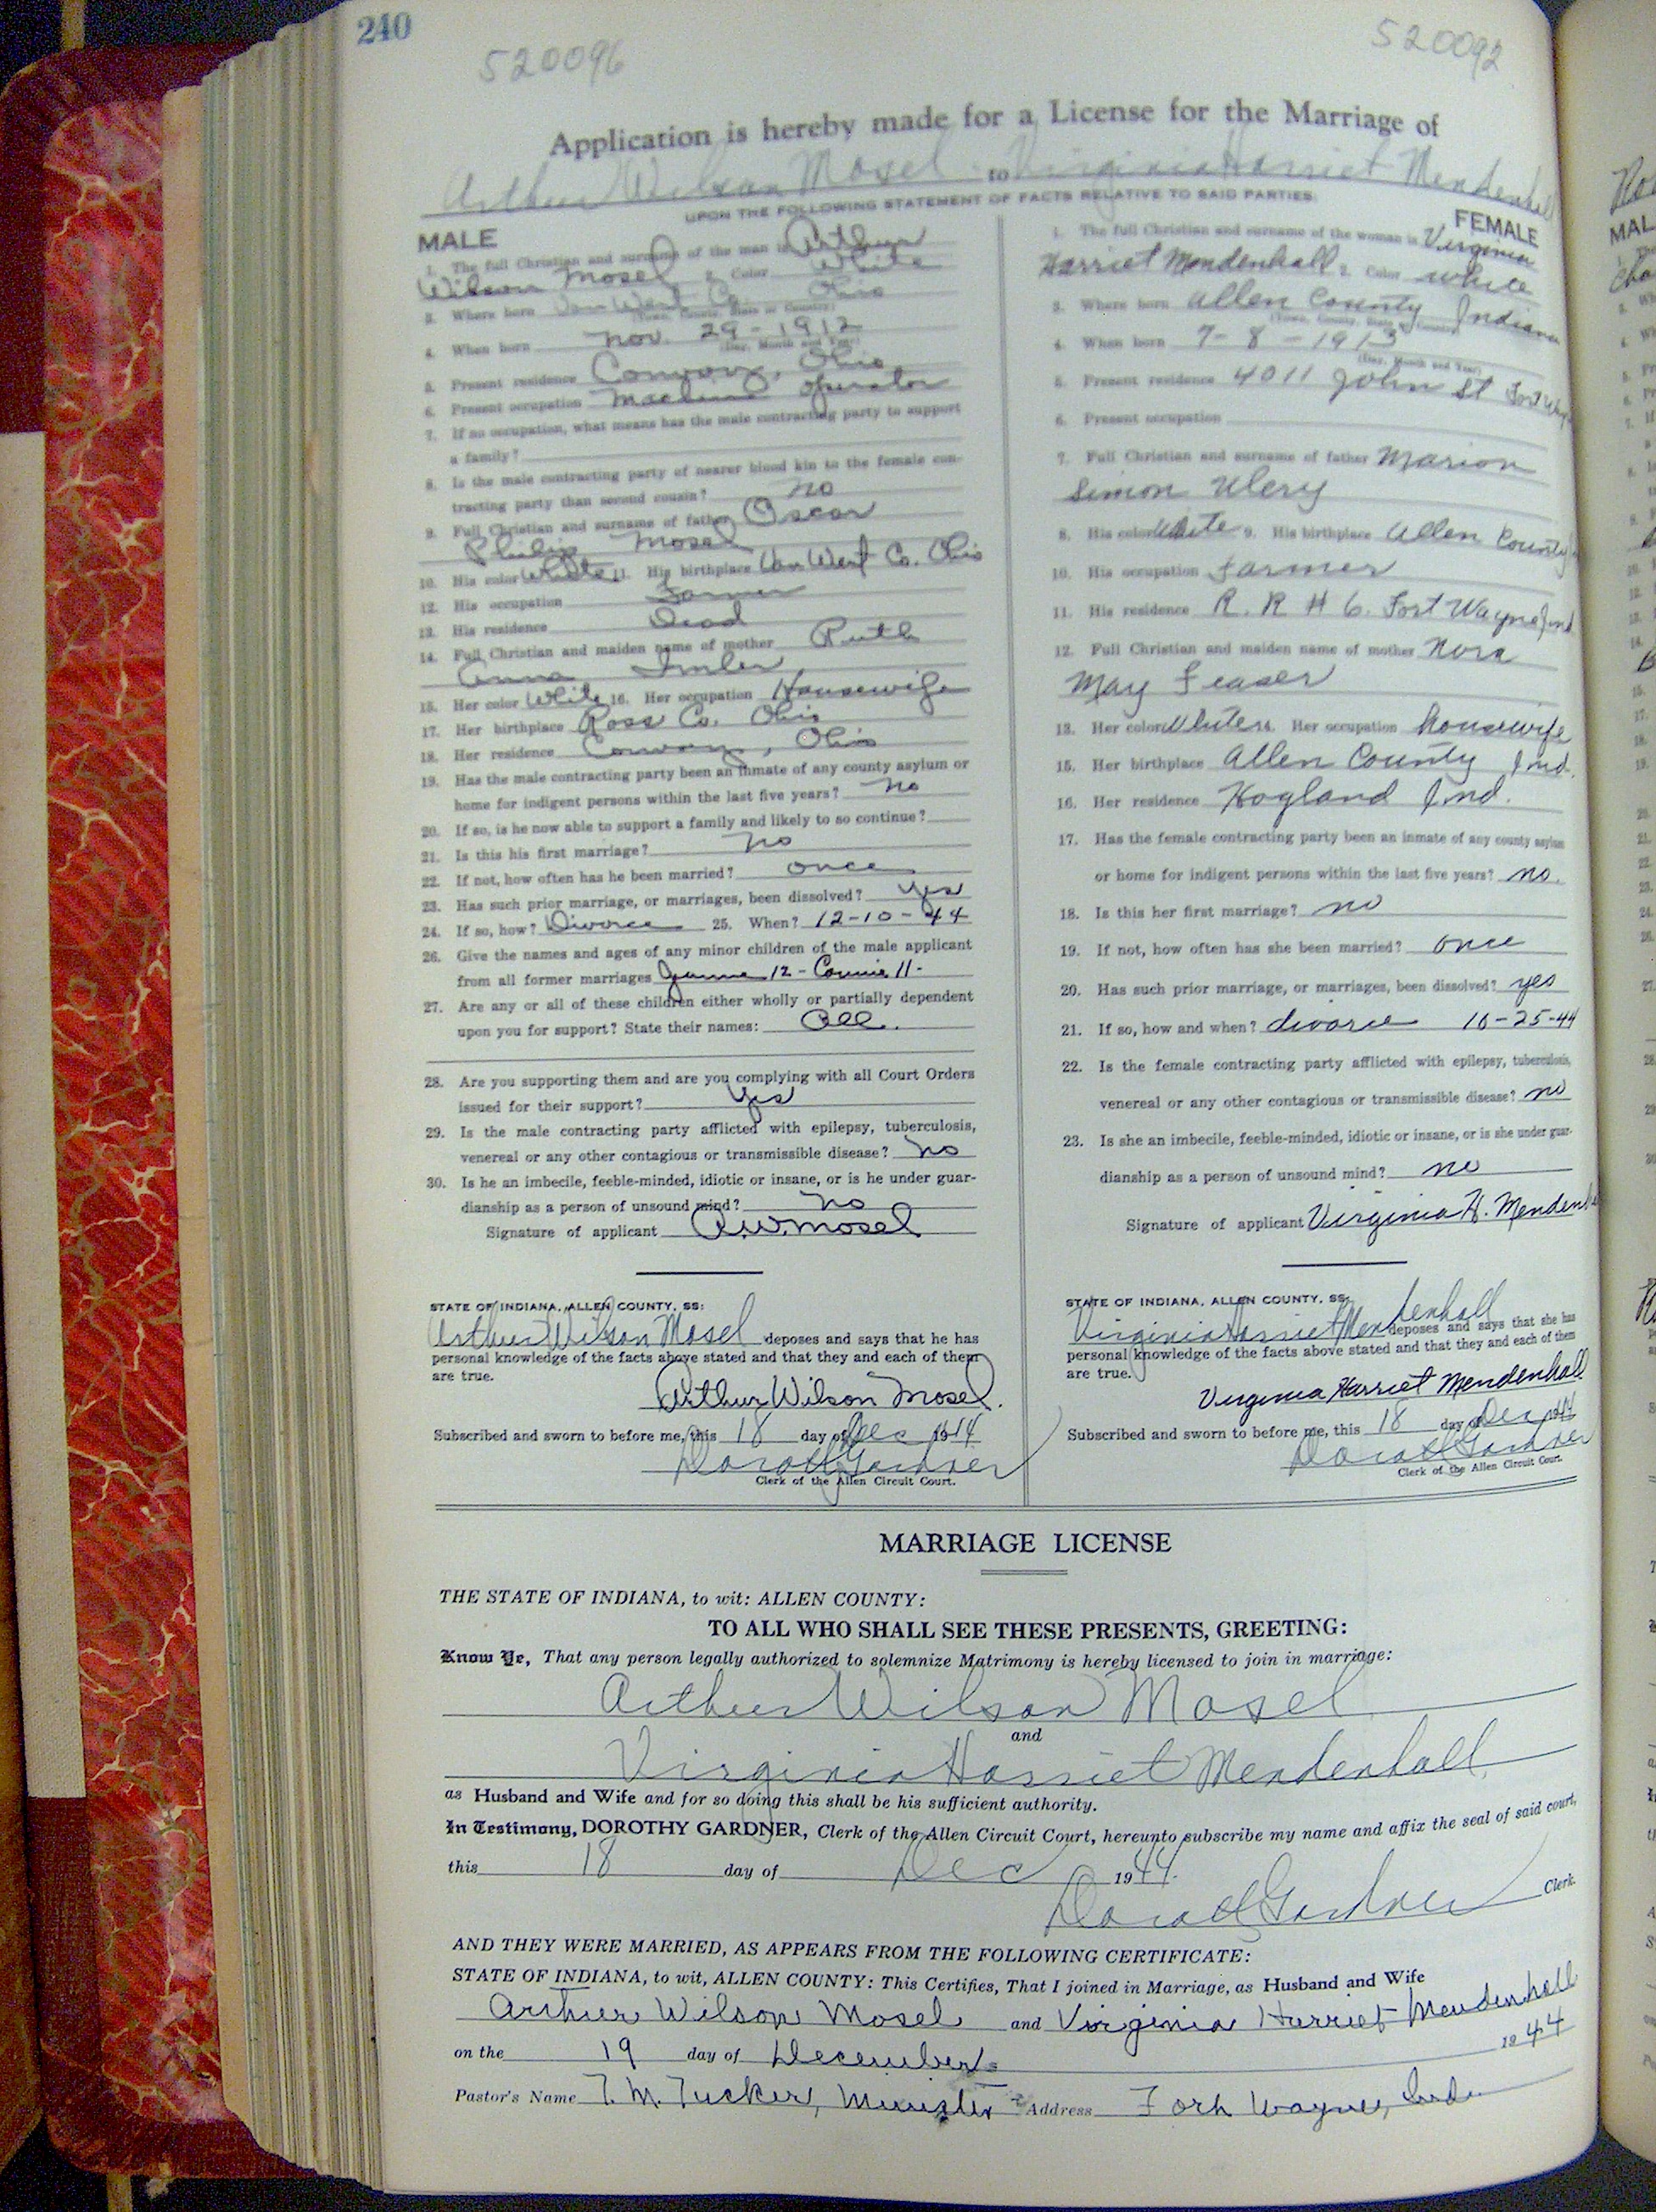 240
520096
520092
Application is hereby made for a License for the Marriage of
Arthur Wilson Mosel to Virginia Harriet Mendenhall
UPON THE FOLLOWING STATEMENT OF FACTS RELATIVE TO SAID PARTIES
MALE
1. The full Christian and surname of the man is Arthur
Wilson Mosel 2. Color White
3. Where born Van Wert Co. Ohio
(Town, County, State or Country)
4. When born Nov. 29-1912
(Day, Month and Year)
5. Present residence Convoy, Ohio
6. Present occupation Machine operator
7. If no occupation, what means has the male contracting party to support
a family?
8. Is the male contracting party of nearer blood kin to the female con-
tracting party than second cousin? no
9. Full Christian and surname of father Oscar
Philip Mosel
10. His color White 11. His birthplace Van Wert Co. Ohio
12. His occupation Farmer
13. His residence Dead
14. Full Christian and maiden name of mother Ruth
Anna Imler
15. Her color White 16. Her occupation Housewife
17. Her birthplace Ross Co. Ohio
18. Her residence Convoy, Ohio
19. Has the male contracting party been an inmate of any county asylum or
home for indigent persons within the last five years? no
20. If so, is he now able to support a family and likely to so continue?
21. Is this his first marriage? no
22. If not, how often has he been married? once
23. Has such prior marriage, or marriages, been dissolved? yes
24. If so, how? Divorce 25. When? 12-10-44
26. Give the names and ages of any minor children of the male applicant
from all former marriages 12 - Connie 11-
27. Are any or all of these children either wholly or partially dependent
upon you for support? State their names: All.
28. Are you supporting them and are you complying with all Court Orders
issued for their support? Yes
29. Is the male contracting party afflicted with epilepsy, tuberculosis,
venereal or any other contagious or transmissible disease? no
30. Is he an imbecile, feeble-minded, idiotic or insane, or is he under guar-
dianship as a person of unsound mind? no
Signature of applicant A.W. Mosel
STATE OF INDIANA, ALLEN COUNTY, SS:
Arthur Wilson Mosel deposes and says that he has
personal knowledge of the facts above stated and that they and each of them
are true.
Arthur Wilson Mosel.
Subscribed and sworn to before me, this 18 day of Dec 1944
Dorothy Gardner
Clerk of the Allen Circuit Court.
FEMALE
1. The full Christian and surname of the woman is Virginia
Harriet Mendenhall 2. Color white
3. Where born Allen County Indiana
(Town, County, State or Country)
4. When born 7-8-1913
(Day, Month and Year)
5. Present residence 4011 John St Fort
6. Present occupation
7. Full Christian and surname of father Marion
Simon Ulery
8. His color White 9. His birthplace Allen County
10. His occupation Farmer
11. His residence R. R # 6. Fort Wayne Ind
12. Full Christian and maiden name of mother Nora
May Feaser
13. Her color White 14. Her occupation housewife
15. Her birthplace Allen County Ind.
16. Her residence Hogland Ind.
17. Has the female contracting party been an inmate of any county asylum
or home for indigent persons within the last five years? no.
18. Is this her first marriage? no
19. If not, how often has she been married? once
20. Has such prior marriage, or marriages, been dissolved? yes
21. If so, how and when? divorce 10-25-44
22. Is the female contracting party afflicted with epilepsy, tuberculosis,
venereal or any other contagious or transmissible disease? no
23. Is she an imbecile, feeble-minded, idiotic or insane, or is she under guar-
dianship as a person of unsound mind? no
Signature of applicant Virginia H. Menden
STATE OF INDIANA, ALLEN COUNTY, SS:
Virginia Harriet Mendenhall deposes and says that she has
personal knowledge of the facts above stated and that they and each of them
are true.
Virginia Harriet Mendenhall
Subscribed and sworn to before me, this 18 day of Dec 1944
Dorothy Gardner
Clerk of the Allen Circuit Court.
MARRIAGE LICENSE
THE STATE OF INDIANA, to wit: ALLEN COUNTY:
TO ALL WHO SHALL SEE THESE PRESENTS, GREETING:
Know Ye, That any person legally authorized to solemnize Matrimony is hereby licensed to join in marriage:
Arthur Wilson Mosel
and
Virginia Harriet Mendenhall
as Husband and Wife and for so doing this shall be his sufficient authority.
In Testimony, DOROTHY GARDNER, Clerk of the Allen Circuit Court, hereunto subscribe my name and affix the seal of said court,
this 18 day of Dec 1944.
Dorothy Gardner Clerk.
AND THEY WERE MARRIED, AS APPEARS FROM THE FOLLOWING CERTIFICATE:
STATE OF INDIANA, to wit, ALLEN COUNTY: This Certifies, That I joined in Marriage, as Husband and Wife
Arthur Wilson Mosel and Virginia Harriet Mendenhall
on the 19 day of December 1944
Pastor's Name T. M. Tucker, Minister Address Fort Wayne, Ind.